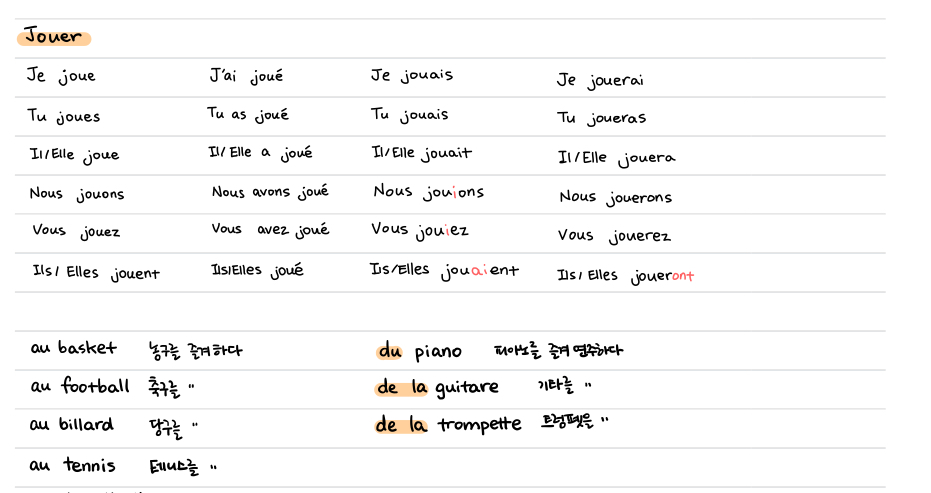 Jouer
Je joue J'ai joué Je jouais Je jouerai
Tu joues Tu as joué Tu jouais Tu joueras
Il/Elle joue Il/Elle a joué Il/Elle jouait Il/Elle jouera
Nous jouons Nous avons joué Nous jouions Nous jouerons
Vous jouez Vous avez joué Vous jouiez Vous jouerez
Ils/Elles jouent Ils/Elles joué Ils/Elles jouaient Ils/Elles joueront
au basket 농구를 즐겨하다 du piano 피아노를 즐겨 연주하다
au football 축구를 " de la guitare 기타를 "
au billard 당구를 " de la trompette 트럼펫을 "
au tennis 테니스를 "